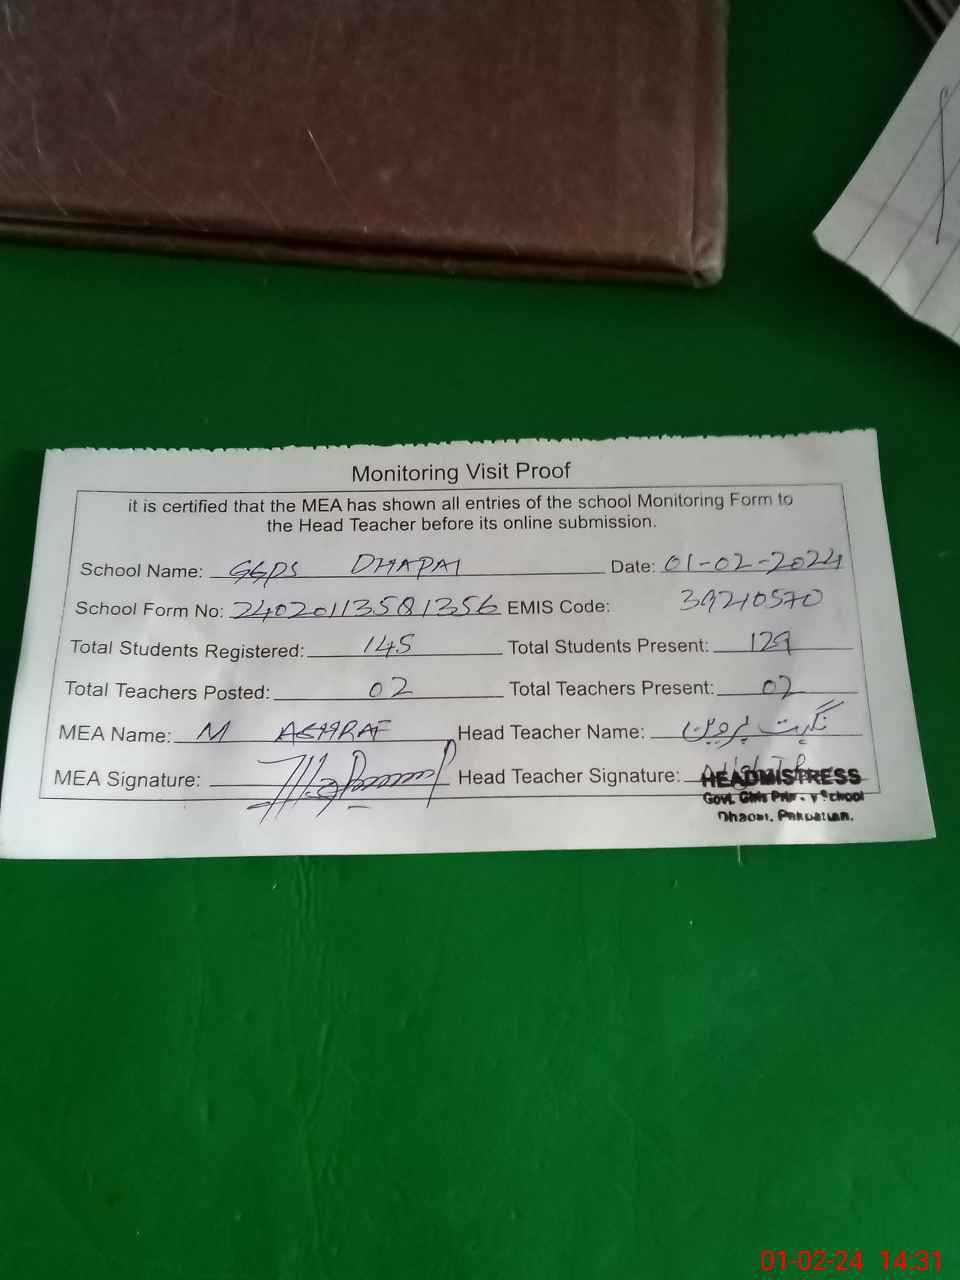 Monitoring Visit Proof
it is certified that the MEA has shown all entries of the school Monitoring Form to
the Head Teacher before its online submission.
School Name: GGPS DHAPAI Date: 01-02-2024
School Form No: 24020113581356 EMIS Code: 39210570
Total Students Registered: 145 Total Students Present: 129
Total Teachers Posted: 02 Total Teachers Present: 02
MEA Name: M ASHRAF Head Teacher Name: نگہت پروین
MEA Signature: Head Teacher Signature:
HEADMISTRESS
Govt. Girls Primary School
Dhapai, Pakpattan.
01-02-24 14:31